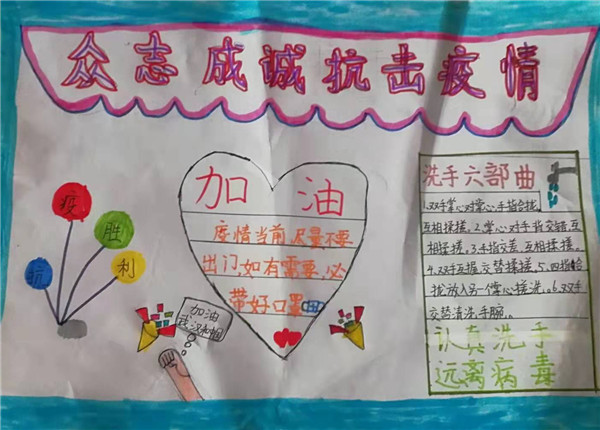 众志成诚抗击疫情
加油
疫情当前尽量不要
出门,如有需要,必
带好口罩
抗
疫
胜
利
加油
武汉和中国
洗手六部曲
1.双手掌心对掌心,手指合拢,
互相揉搓。2.掌心对手背交错,互
相揉搓。3.手指交差,互相揉搓。
4.双手互握交替揉搓。5.四指合
拢放入另一掌心搓洗。6.双手
交替清洗手腕。
认真洗手
远离病毒